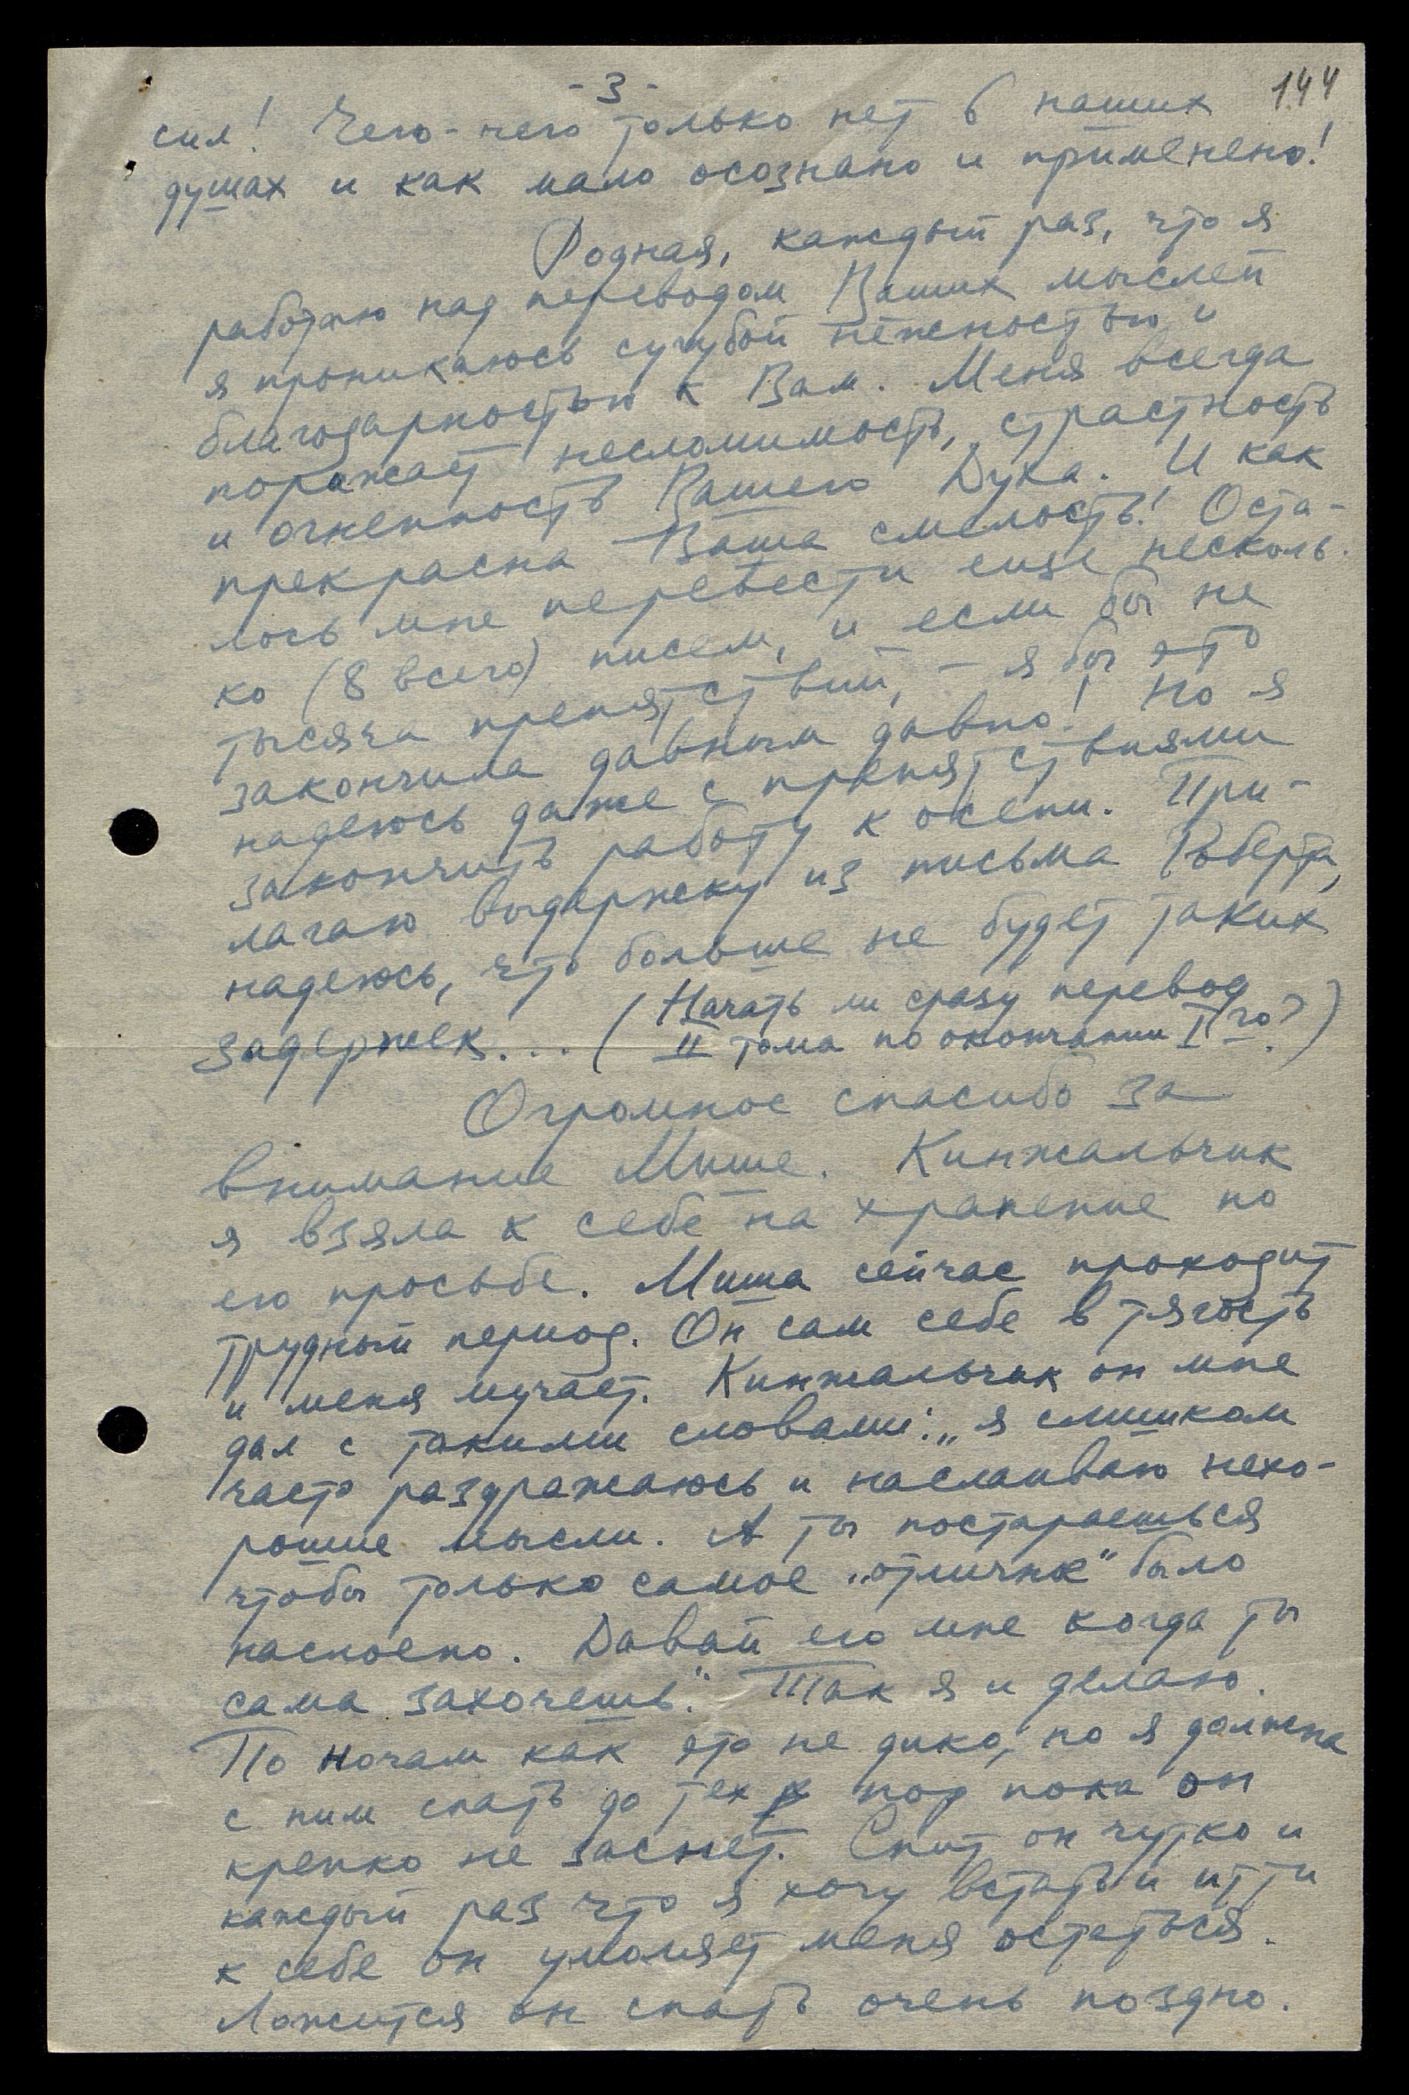 - 3 -
144
сил! Чего-чего только нет в наших
душах и как мало осознано и применено!
Родная, каждый раз, что я
работаю над переводом Ваших мыслей
я проникаюсь сугубой нежностью и
благодарностью к Вам. Меня всегда
поражает несломимость, страстность
и огненность Вашего Духа. И как
прекрасна Ваша смелость! Оста-
лось мне перевести еще несколь-
ко (8 всего) писем, и если бы не
тысяча препятствий, - я бы это
закончила давным давно! Но я
надеюсь даже с препятствиями
закончить работу к осени. При-
лагаю выдержку из письма Роберта,
надеюсь, что больше не будет таких
задержек... (Начать ли сразу перевод
II тома по окончании I го?)
Огромное спасибо за
внимание Мише. Кинжальчик
я взяла к себе на хранение по
его просьбе. Миша сейчас проходит
трудный период. Он сам себе в тягость
и меня мучает. Кинжальчик он мне
дал с такими словами: „я слишком
часто раздражаюсь и наслаиваю нехо-
рошие мысли. А ты постараешься
чтобы только самое „отличное" было
наслоено. Давай его мне когда ты
сама захочешь." Так я и делаю.
По ночам как это не дико, но я должна
с ним спать до тех пор пока он
крепко не заснет. Спит он чутко и
каждый раз что я хочу встать и итти
к себе он умоляет меня остаться.
Ложится он спать очень поздно.